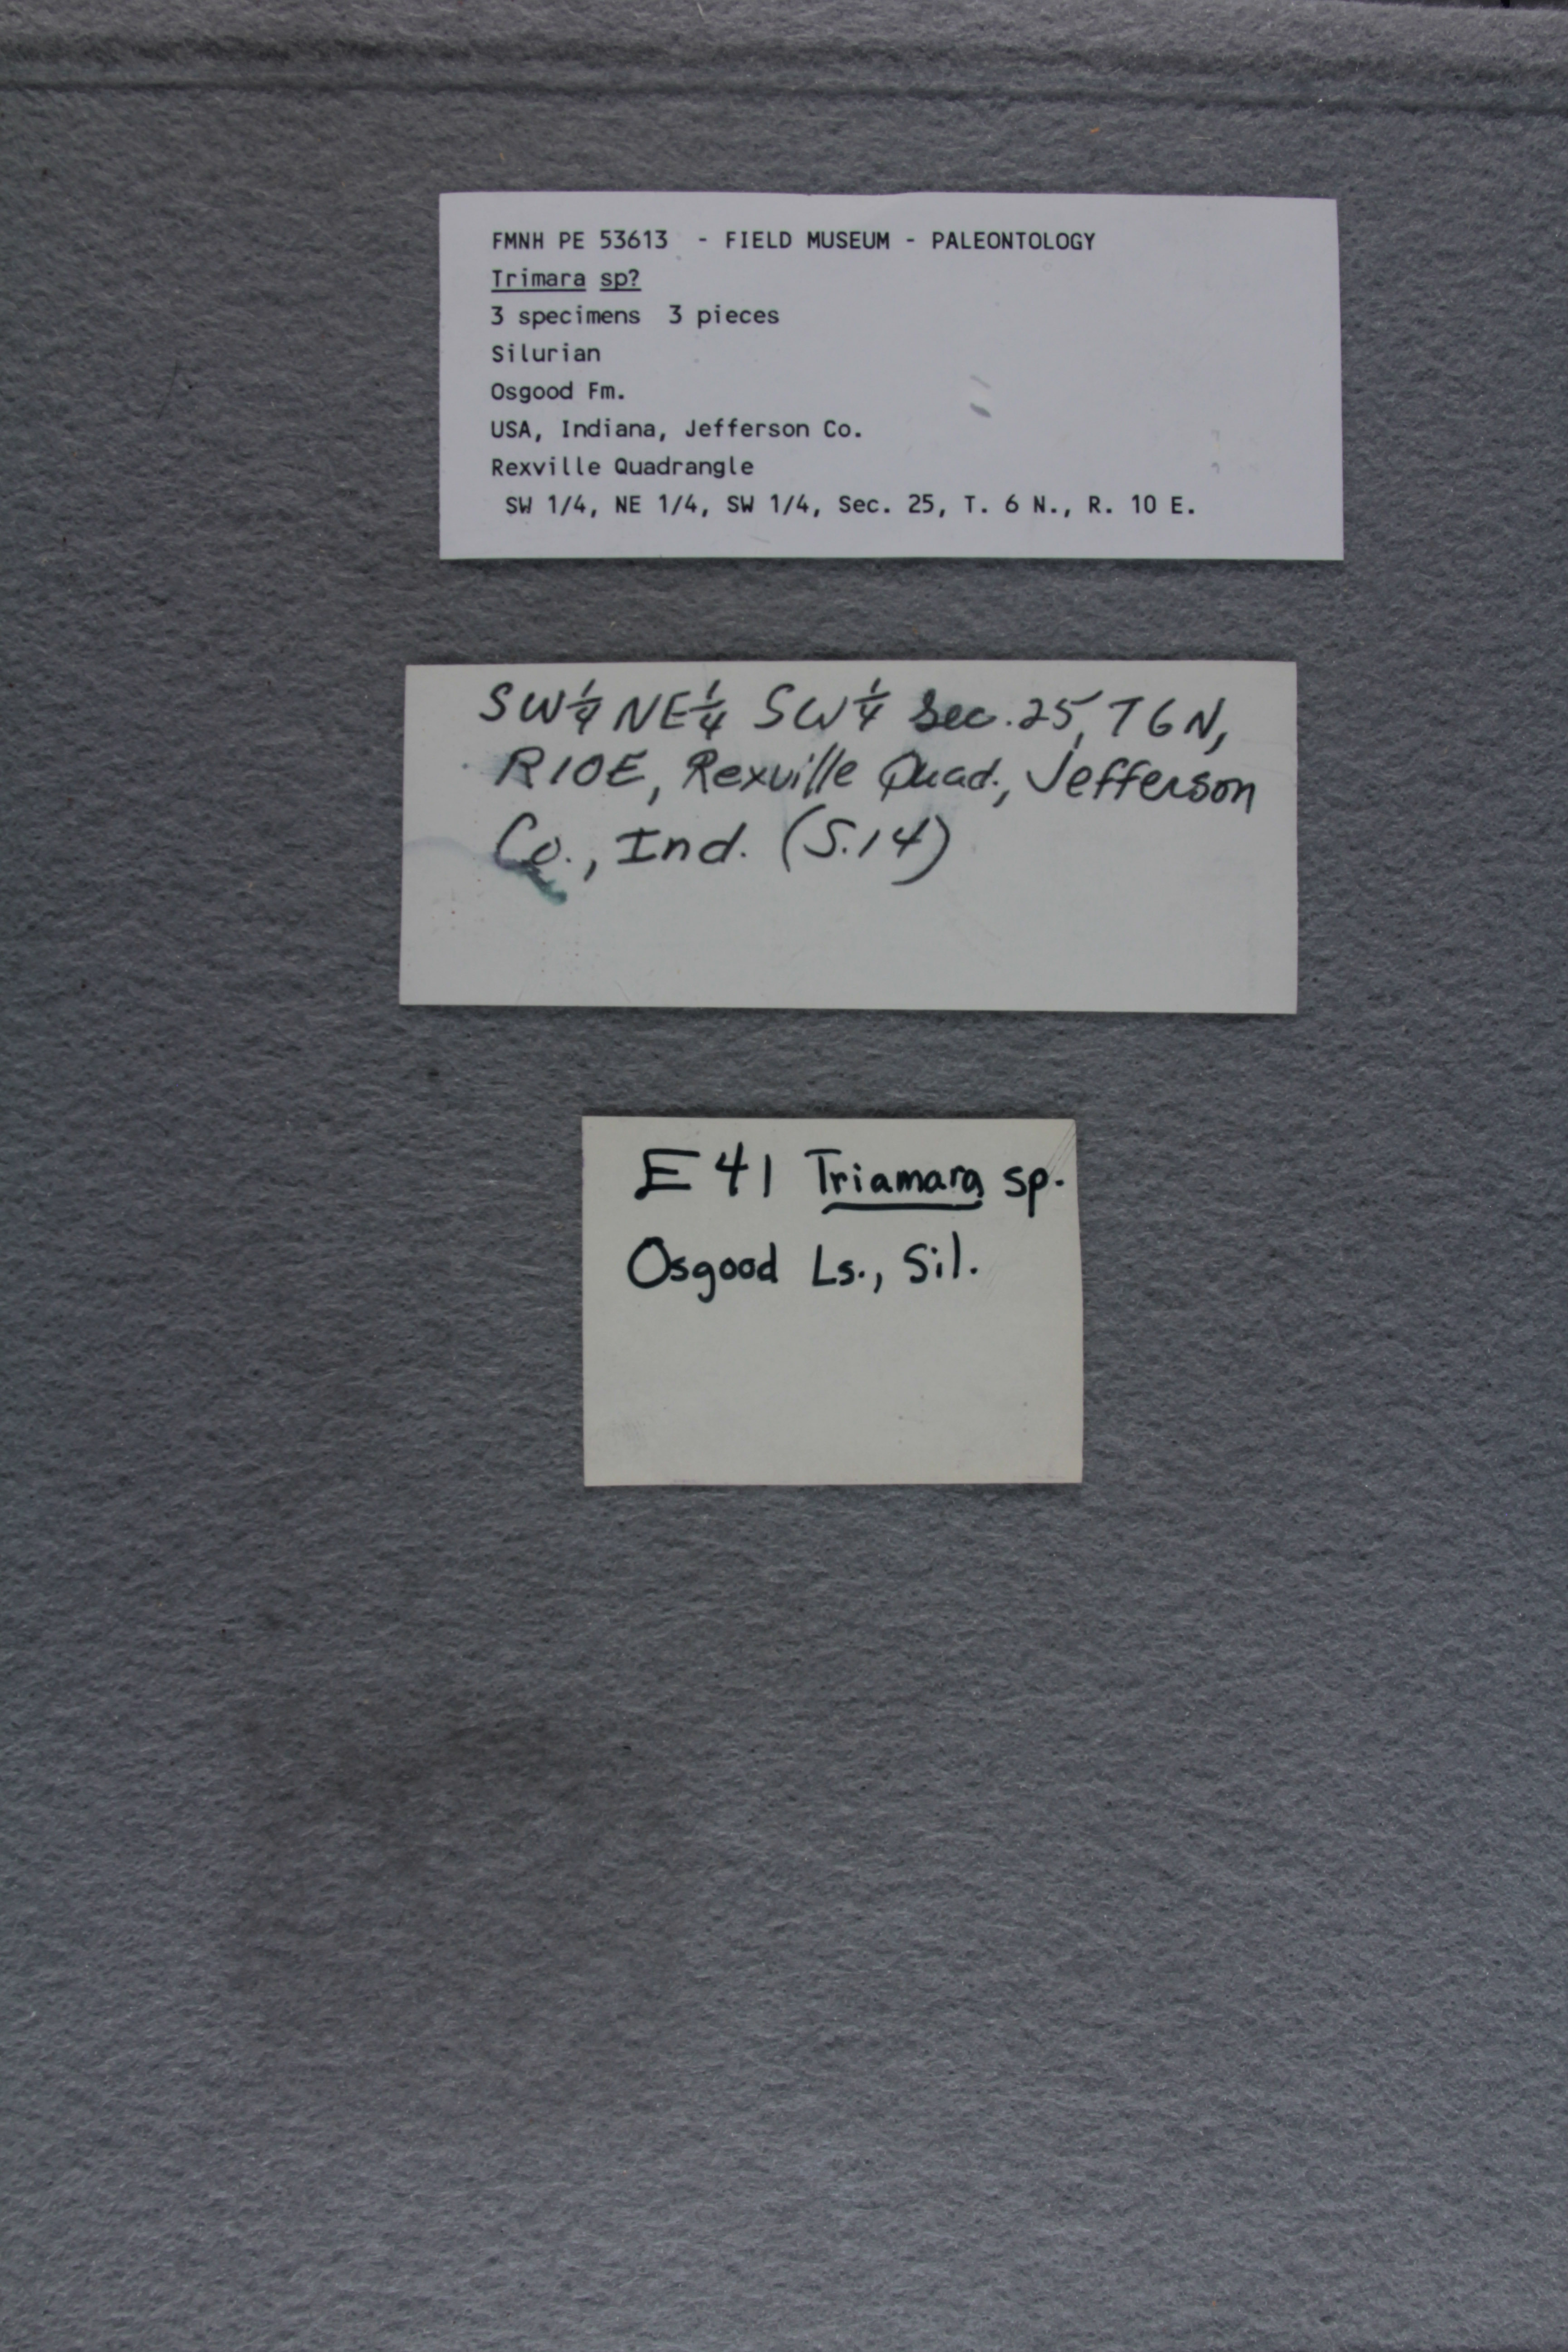 FMNH PE 53613 - FIELD MUSEUM - PALEONTOLOGY
Trimara sp?
3 specimens 3 pieces
Silurian
Osgood Fm.
USA, Indiana, Jefferson Co.
Rexville Quadrangle
SW 1/4, NE 1/4, SW 1/4, Sec. 25, T. 6 N., R. 10 E.
SW 1/4 NE 1/4 SW 1/4 Sec. 25, T6N,
R10E, Rexville Quad., Jefferson
Co., Ind. (S.14)
E 41 Triamara sp.
Osgood Ls., Sil.